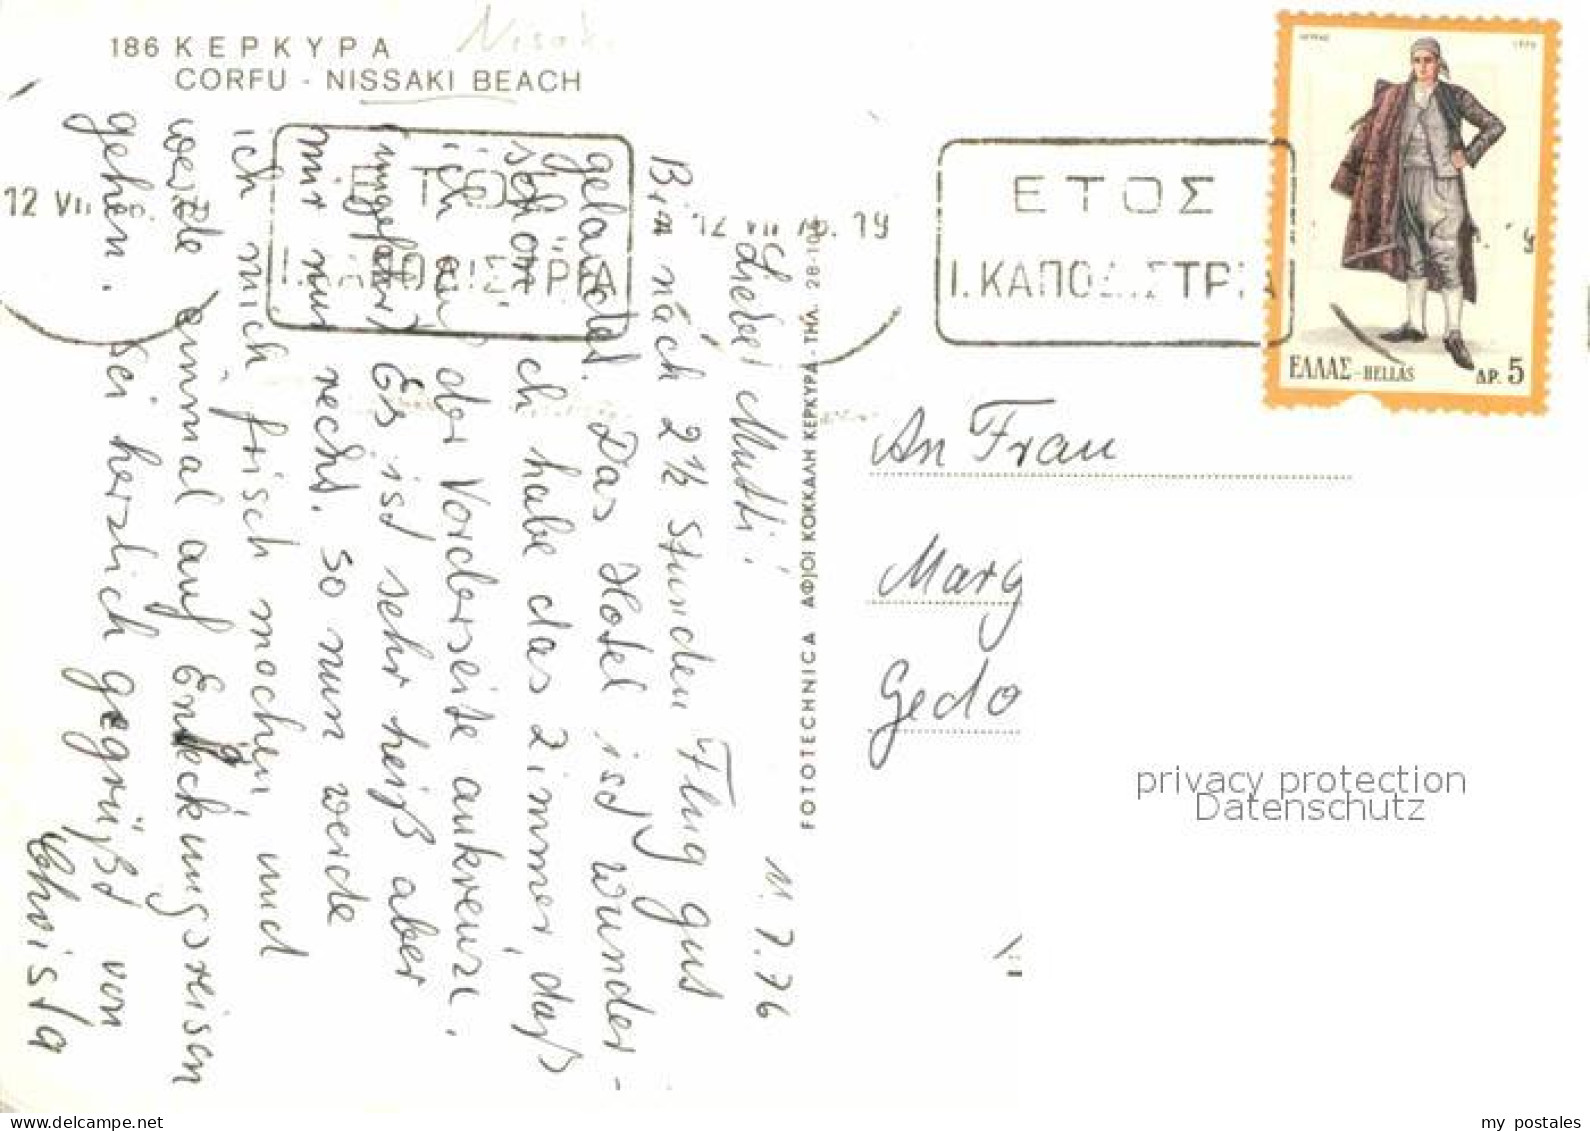 186 ΚΕΡΚΥΡΑ
CORFU - NISSAKI BEACH
12 VII
12 VII 76. 19
ΕΤΟΣ
Ι. ΚΑΠΟΔΙΣΤΡΙΑ
ΕΛΛΑΣ-HELLAS
ΔΡ. 5
11.7.76
Liebe Mutti!
Bin nach 2½ Stunden Flug gut
gelandet. Das Hotel ist wunder-
schön, ich habe das Zimmer, daß
ich auf der Vorderseite ankreuze.
Es ist sehr heiß aber
mir nur recht. So nun werde
ich mich „frisch machen“ und
werde einmal auf Endeckungsreisen
gehen. Sei herzlich gegrüßt von
Christa
FOTOTECHNICA ΑΦΟΙ ΚΟΚΚΑΛΗ ΚΕΡΚΥΡΑ - ΤΗΛ.
An Frau
Marg
Gedo
privacy protection
Datenschutz
my_postales